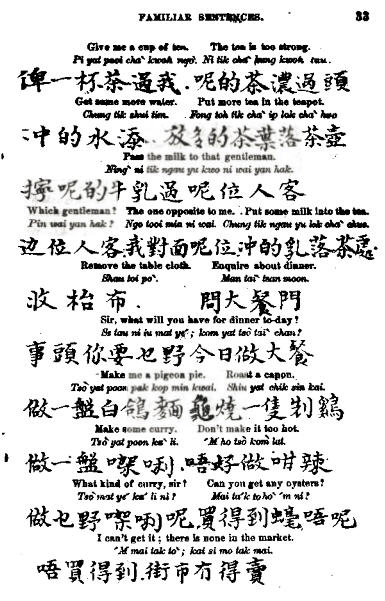 FAMILIAR SENTENCES. 33
Give me a cup of tea. The tea is too strong.
Pi yat pooi cha` kwoh ngo. Ni tik cha` kwoh tau.
俾一杯茶過我.呢的茶濃過頭
Get some more water. Put more tea in the teapot.
Chung tik shui tim. Fong toh tik cha` ip lok cha` hoo
冲的水添.放多的茶葉落茶壺
Pass the milk to that gentleman.
Ning` ni tik ngau yu kwo ni wai yan hak.
擰呢的牛乳過呢位人客
Which gentleman? The one opposite to me. Put some milk into the tea.
Pin wai yan hak? Ngo tooi min ni wai. Chung tik ngau yu lok cha`
边位人客.我對面呢位.冲的乳落茶處
Remove the table cloth. Enquire about dinner.
Shau toi po`. Man tai` tsan moon.
收枱布. 問大餐門
Sir, what will you have for dinner to-day?
Sz tau ni iu mat ye`; kom yat tso tai` chan?
事頭你要乜野今日做大餐
Make me a pigeon pie. Roast a capon.
Tso yat poon pak kop min kwai. Shiu yat chik sin kai.
做一盤白鴿麵龜燒一隻𠜎鷄
Make some curry. Don't make it too hot.
Tso yat poon ka` li. `M ho tso kom lat.
做一盤㗎唎.唔好做咁辣
What kind of curry, sir? Can you get any oysters?
Tso mat ye` ka` li ni? Mai tak to ho` `m ni?
做乜野㗎唎呢.買得到蠔唔呢
I can't get it; there is none in the market.
`M mai tak to`; kai si mo tak mai.
唔買得到.街市冇得賣